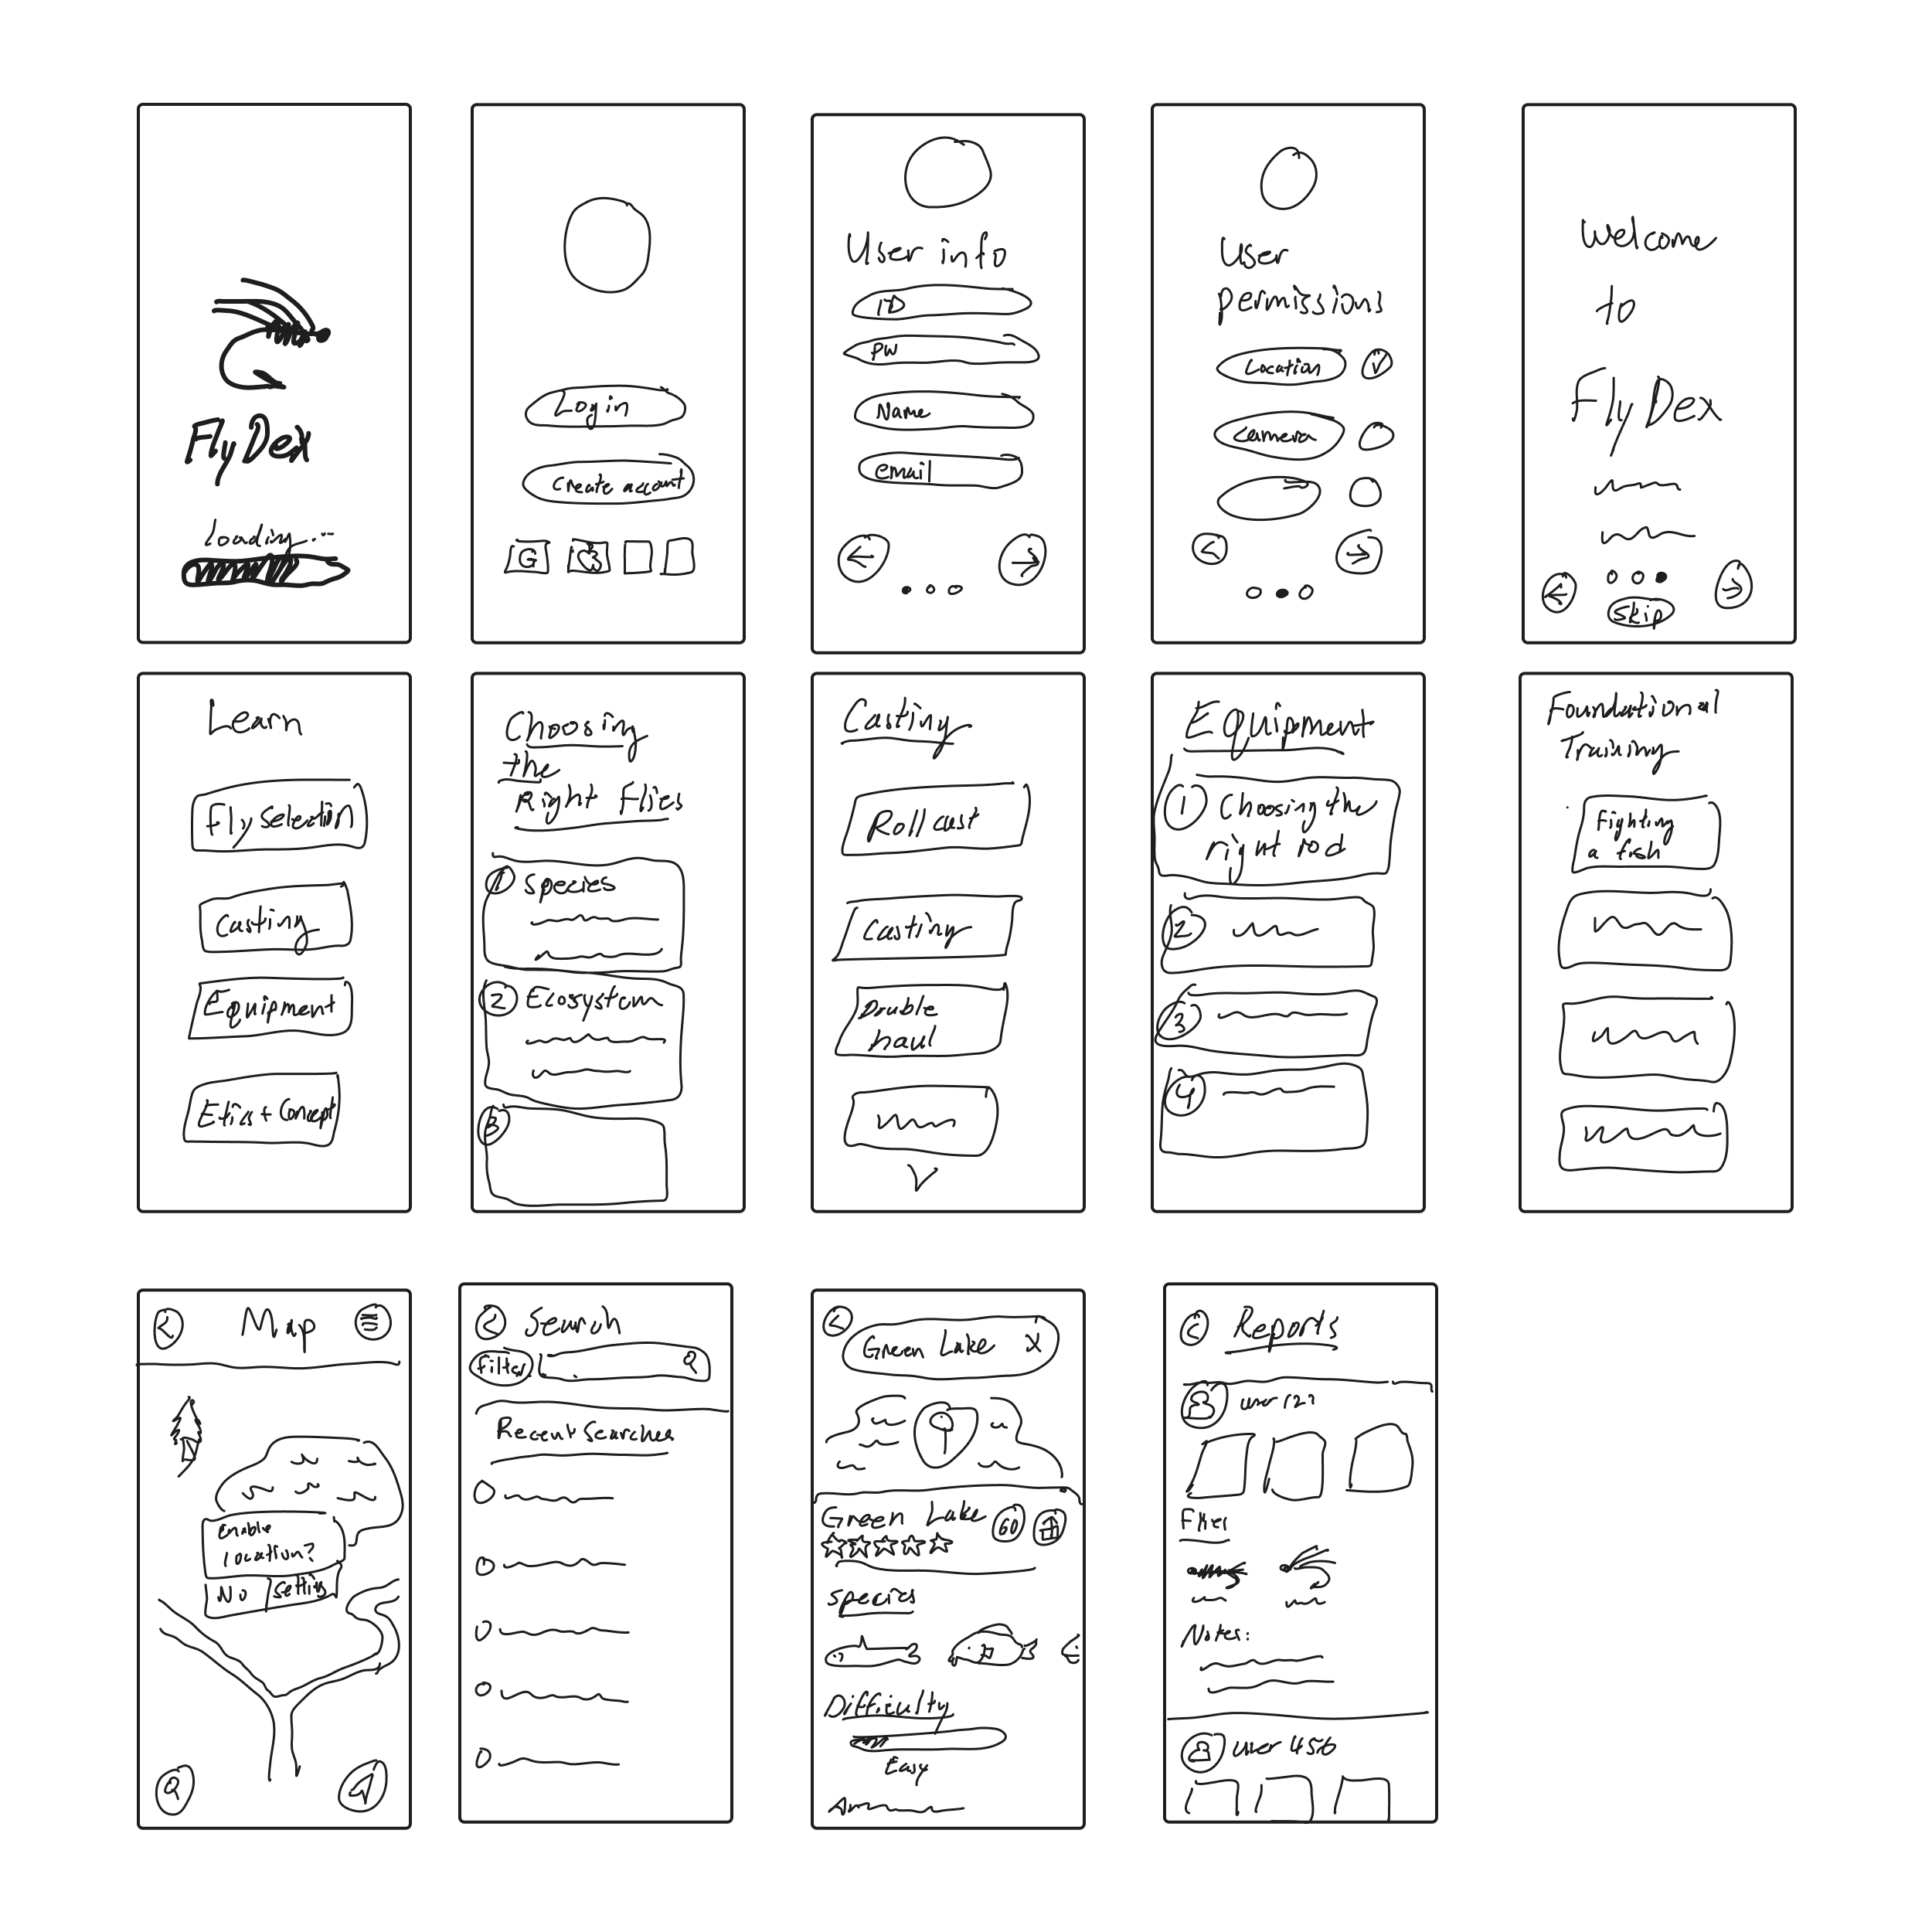 FlyDex
Loading...
Login
Create account
G
User info
ID
PW
Name
email
User
permissions
Location
Camera
Welcome
to
FlyDex
Skip
Learn
Fly Selection
Casting
Equipment
Etics + Concept
Choosing
the
Right Flies
1 Species
2 Ecosystem
3
Casting
Roll cast
Casting
Double
haul
Equipment
1 Choosing the
right rod
2
3
4
Foundational
Training
Fighting
a fish
Map
Enable
location?
No
Search
Filter
Recent Searches
Green Lake X
Green Lake GO
Species
Difficulty
Easy
Reports
user 123
Flies
Notes:
user 456